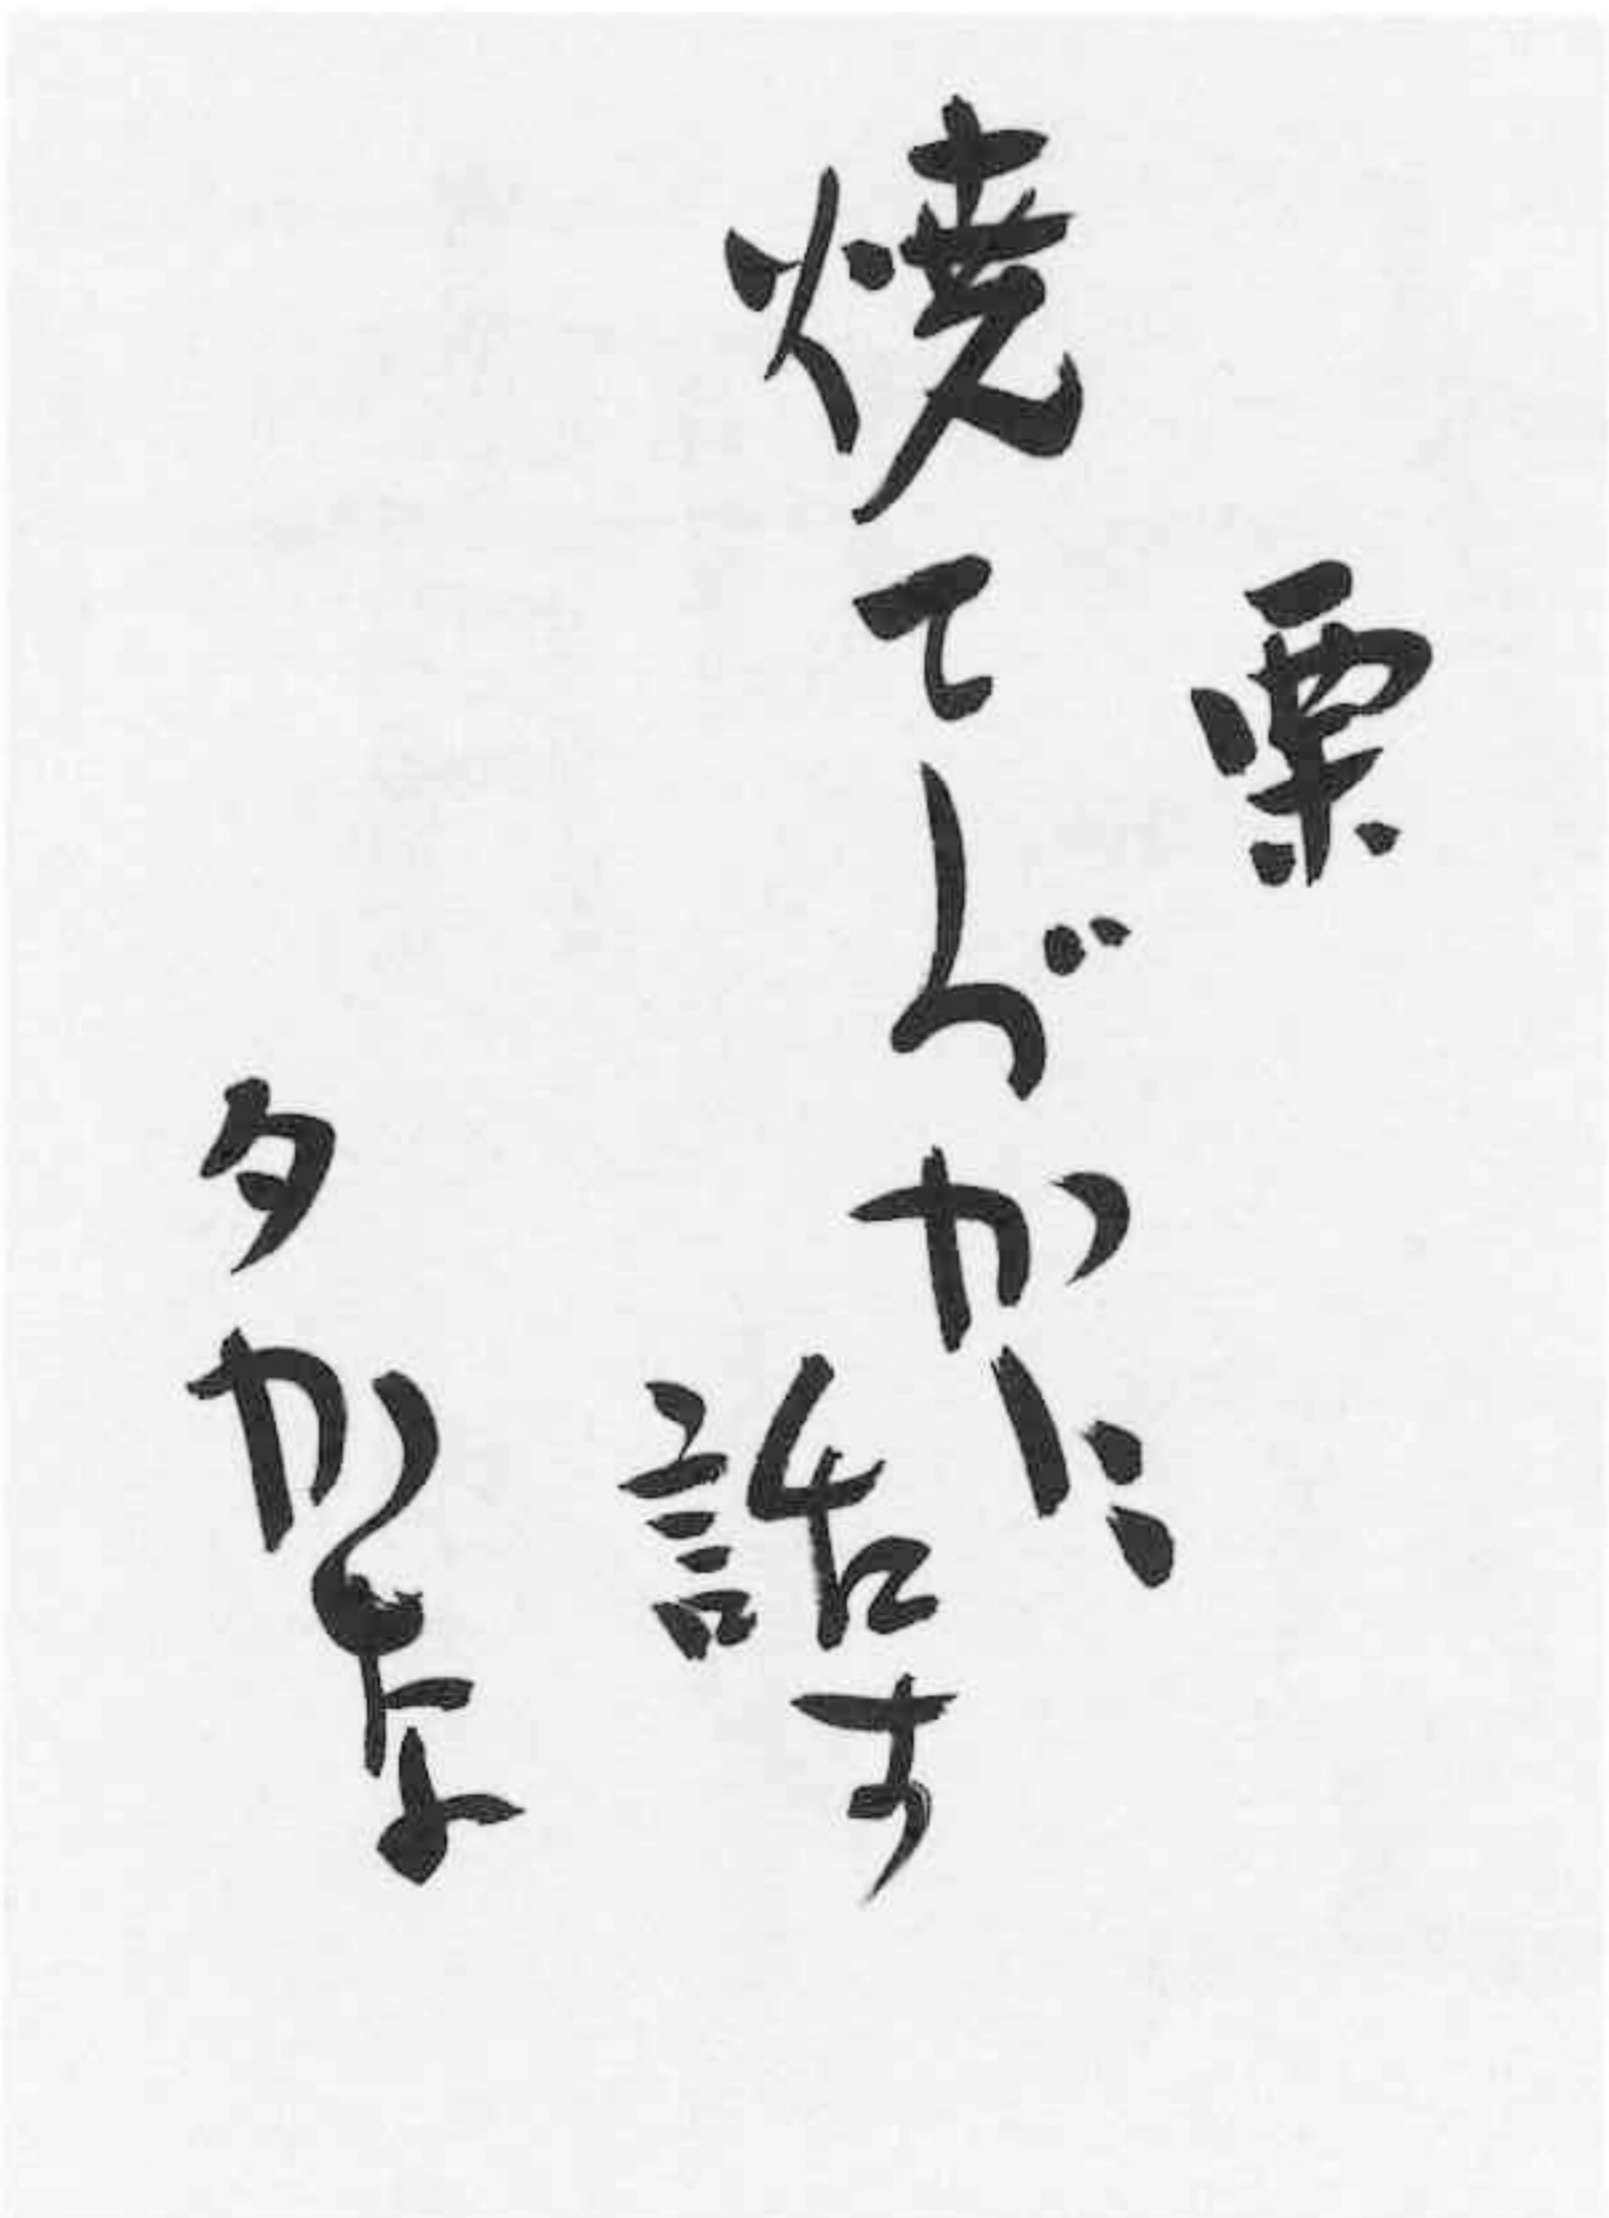 栗
焼てしづかに
話す
夕かなよ